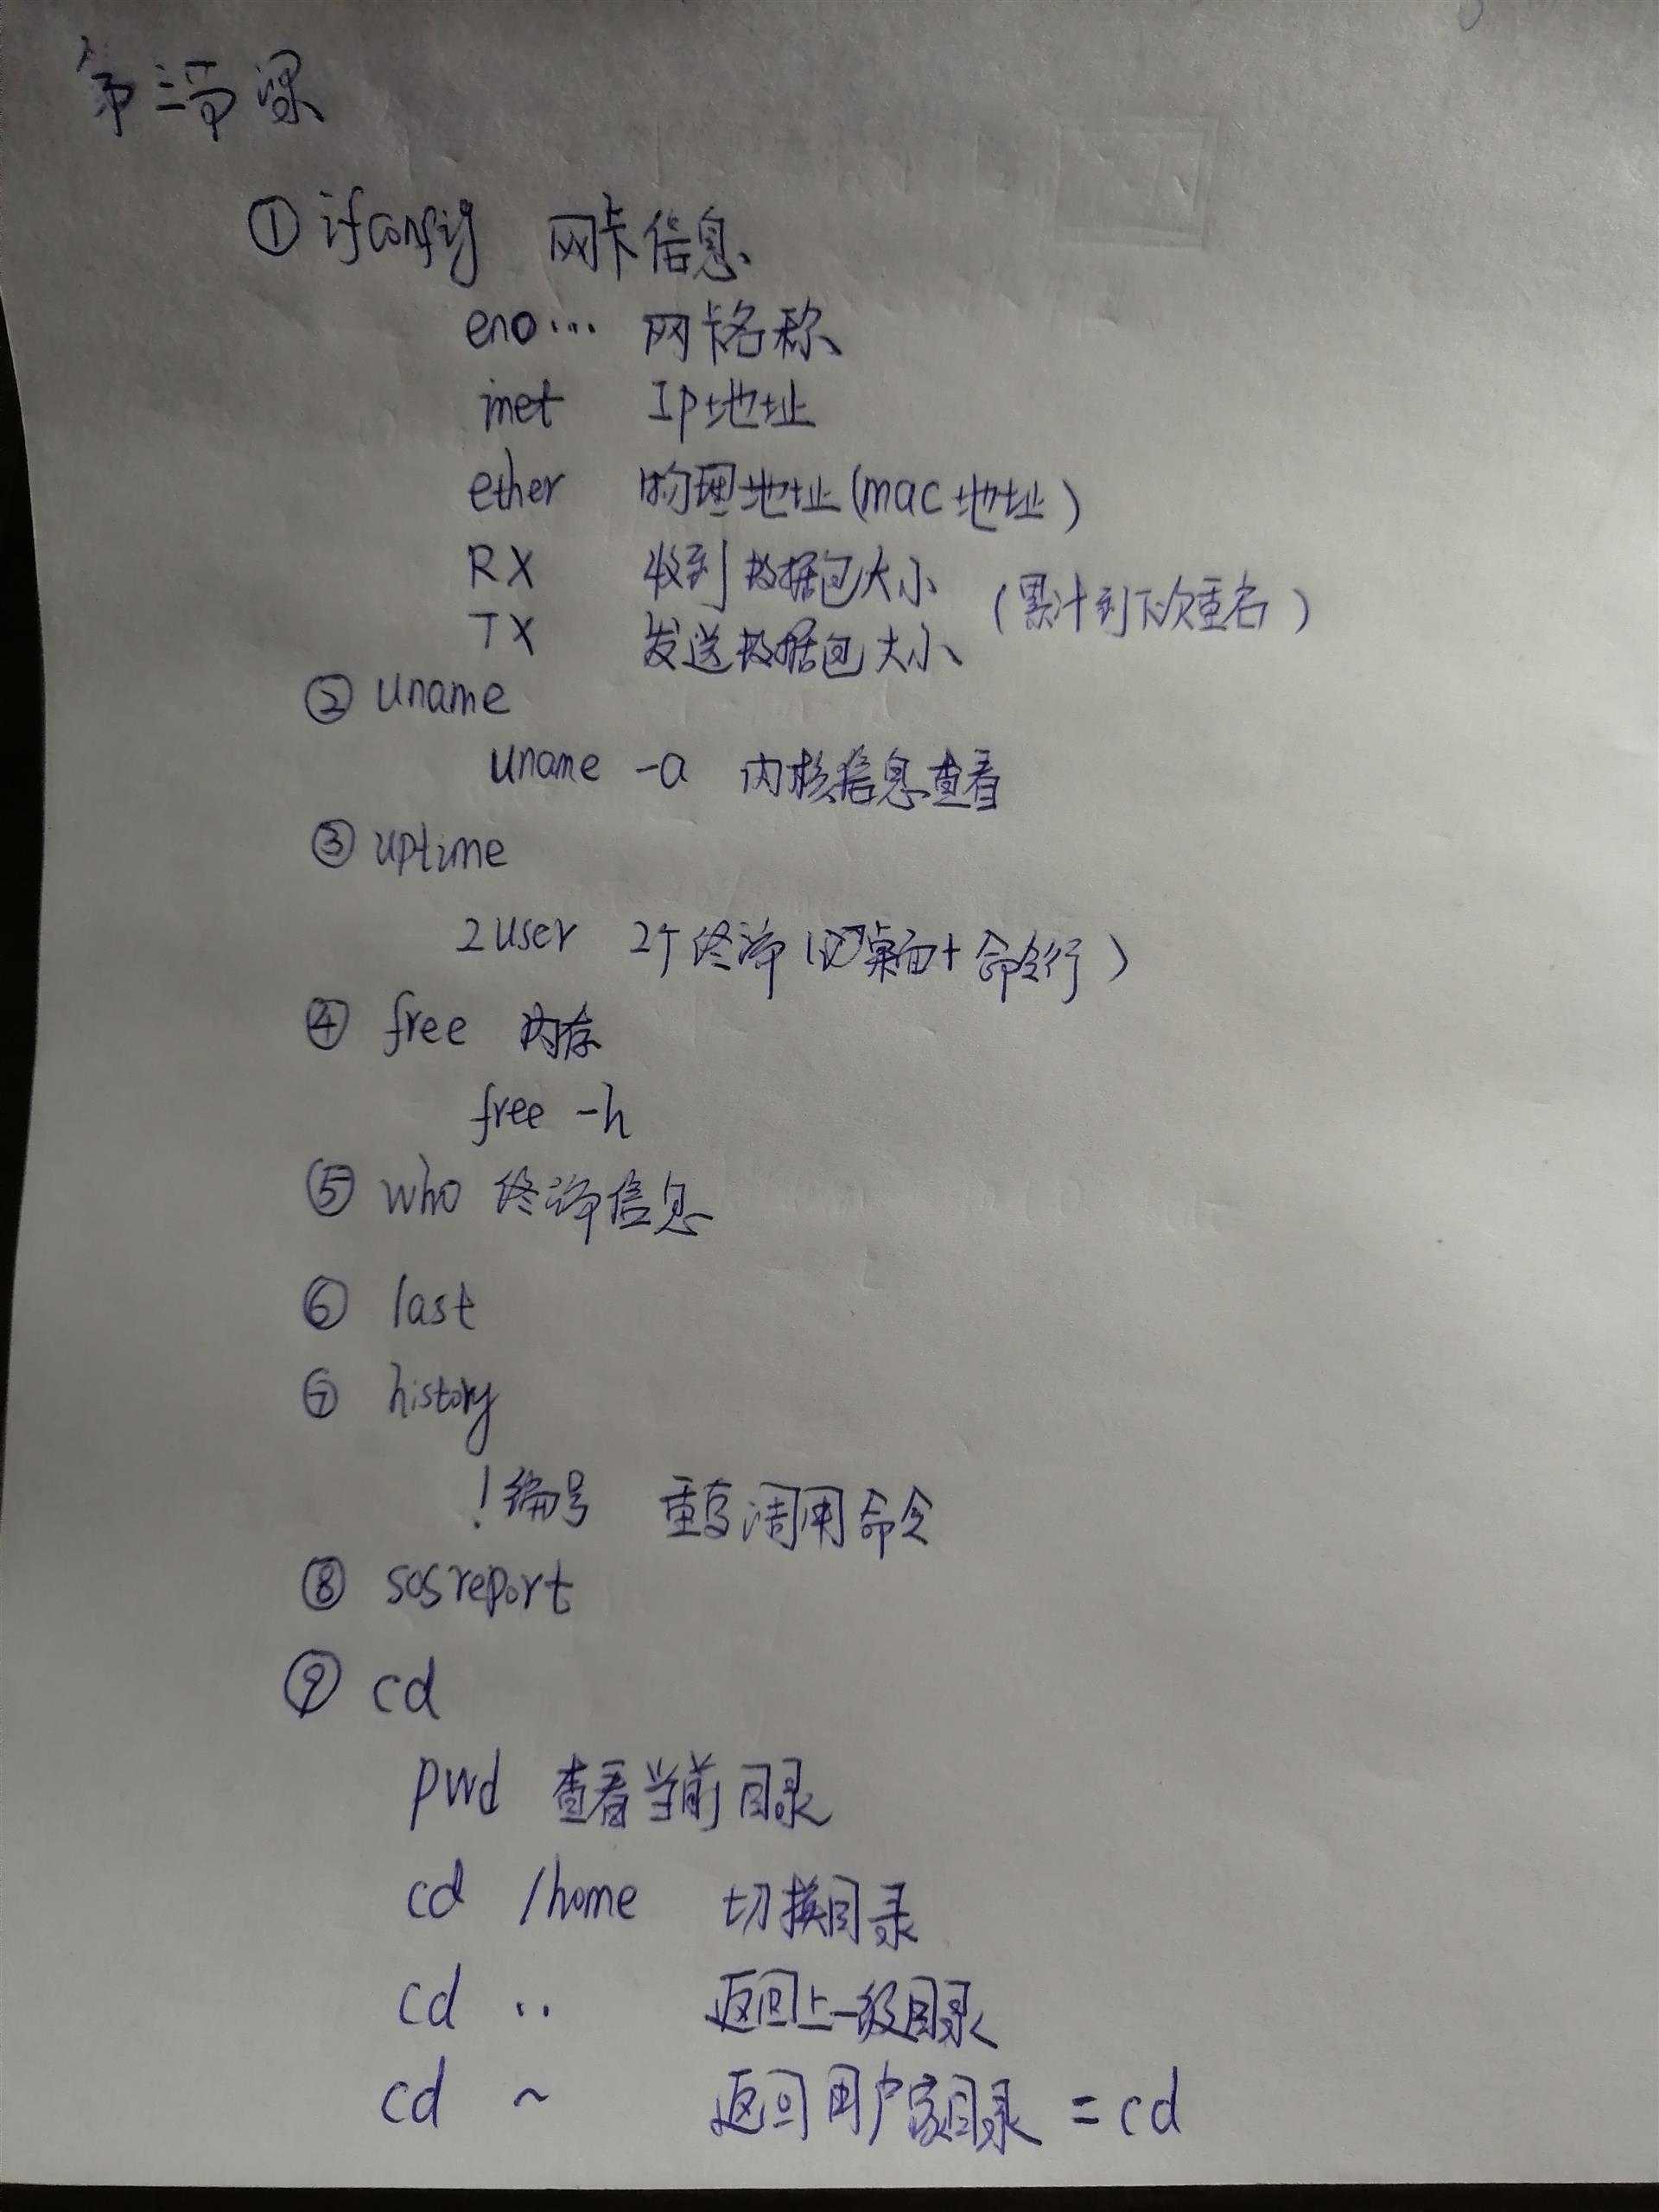 第三节课
① ifconfig 网卡信息
eno... 网卡名称
inet Ip地址
ether 物理地址(mac地址)
RX 收到数据包大小 (累计到下次重启)
TX 发送数据包大小
② uname
uname -a 内核信息查看
③ uptime
2user 2个终端 (桌面+命令行)
④ free 内存
free -h
⑤ who 终端信息
⑥ last
⑦ history
!编号 重复调用命令
⑧ sosreport
⑨ cd
pwd 查看当前目录
cd /home 切换目录
cd .. 返回上一级目录
cd ~ 返回用户家目录 = cd